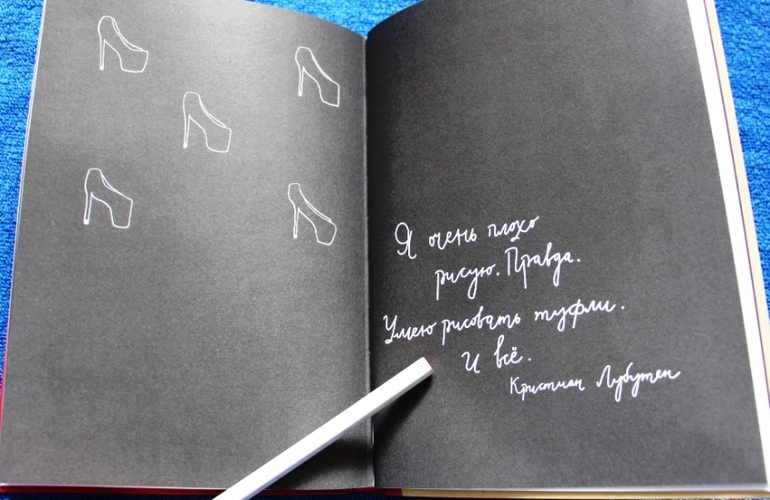 Я очень плохо
рисую. Правда.
Умею рисовать туфли.
И всё.
Кристиан Лубутен